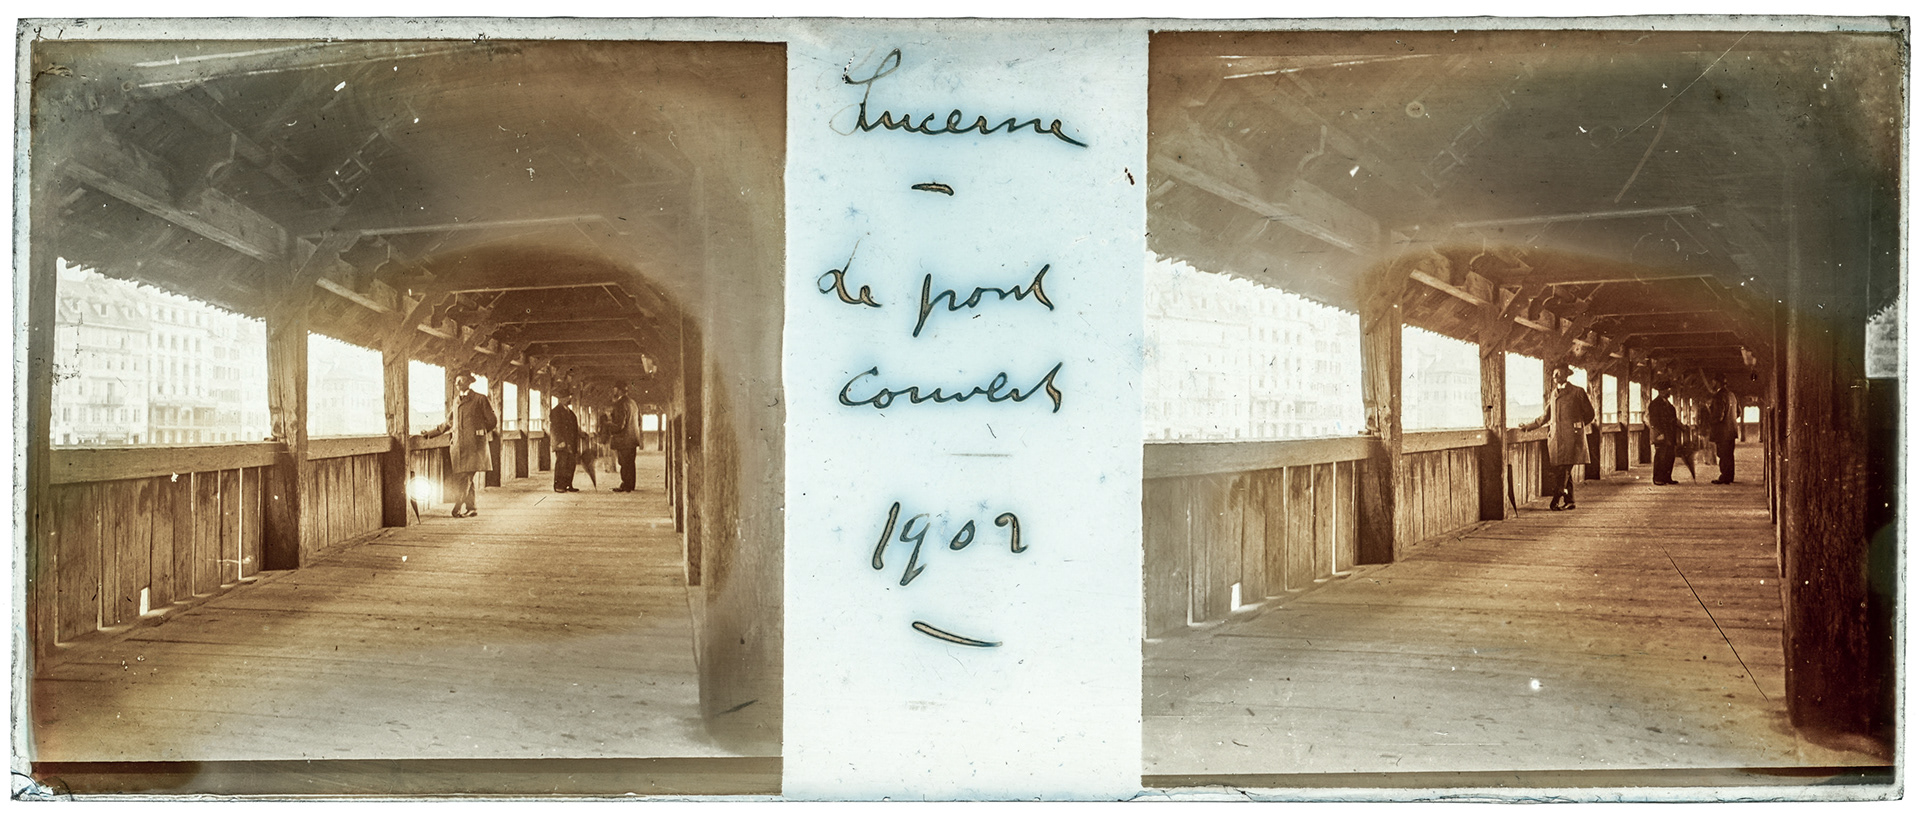 Lucerne
-
le pont
couvert
1902